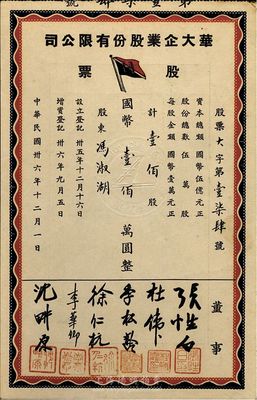 司公限有份股業企大華
票股
股票大字第壹柒肆號
資本總額 國幣伍億元正
股份總數 伍萬股
每股金額 國幣壹萬元正
計壹佰股
國幣壹佰萬圓整
股東馮淑湖
設立登記 卅五年十二月十六日
增資登記 卅六年九月五日
中華民國卅六年十二月一日
董事
張性白
杜偉
李叔
徐仁杭
李華卿
沈